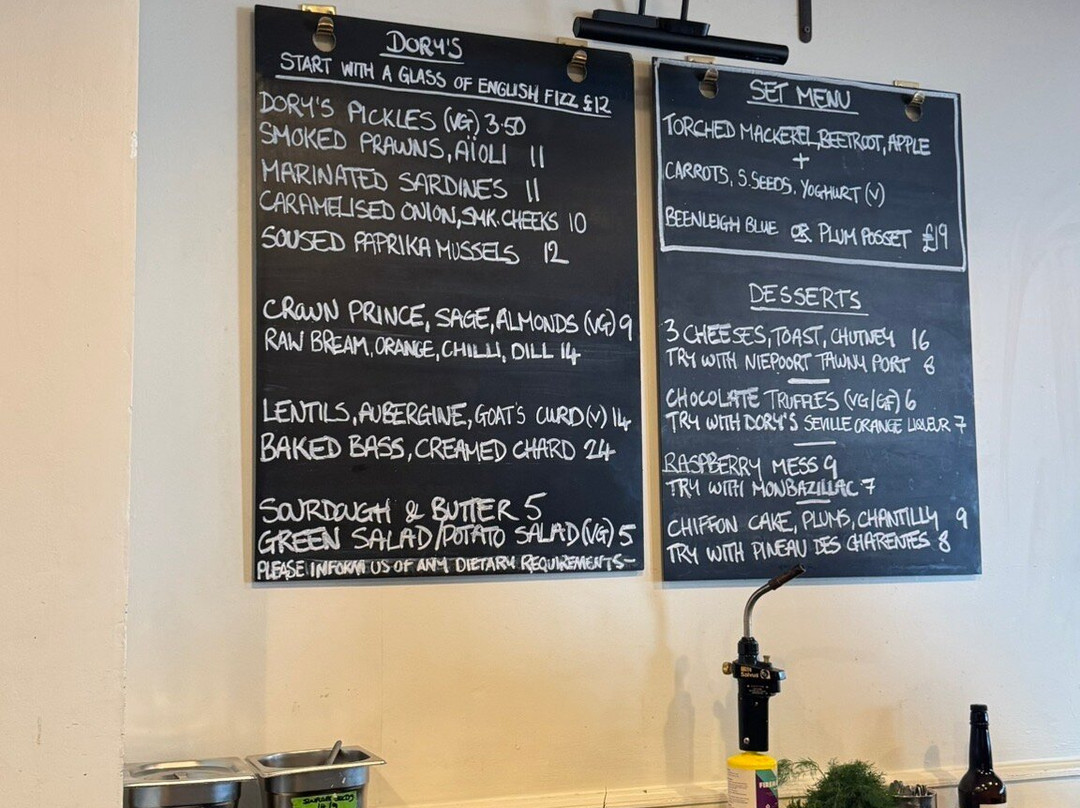 DORY'S
START WITH A GLASS OF ENGLISH FIZZ £12
DORY'S PICKLES (VG) 3.50
SMOKED PRAWNS, AÏOLI 11
MARINATED SARDINES 11
CARAMELISED ONION, SMK. CHEEKS 10
SOUSED PAPRIKA MUSSELS 12
CROWN PRINCE, SAGE, ALMONDS (VG) 9
RAW BREAM, ORANGE, CHILLI, DILL 14
LENTILS, AUBERGINE, GOAT'S CURD (V) 14
BAKED BASS, CREAMED CHARD 24
SOURDOUGH & BUTTER 5
GREEN SALAD/POTATO SALAD (VG) 5
PLEASE INFORM US OF ANY DIETARY REQUIREMENTS-
SET MENU
TORCHED MACKEREL, BEETROOT, APPLE
+
CARROTS, S.SEEDS, YOGHURT (V)
BEENLEIGH BLUE OR PLUM POSSET £19
DESSERTS
3 CHEESES, TOAST, CHUTNEY 16
TRY WITH NIEPOORT TAWNY PORT 8
CHOCOLATE TRUFFLES (VG/GF) 6
TRY WITH DORY'S SEVILLE ORANGE LIQUEUR 7
RASPBERRY MESS 9
TRY WITH MONBAZILLAC 7
CHIFFON CAKE, PLUMS, CHANTILLY 9
TRY WITH PINEAU DES CHARENTES 8